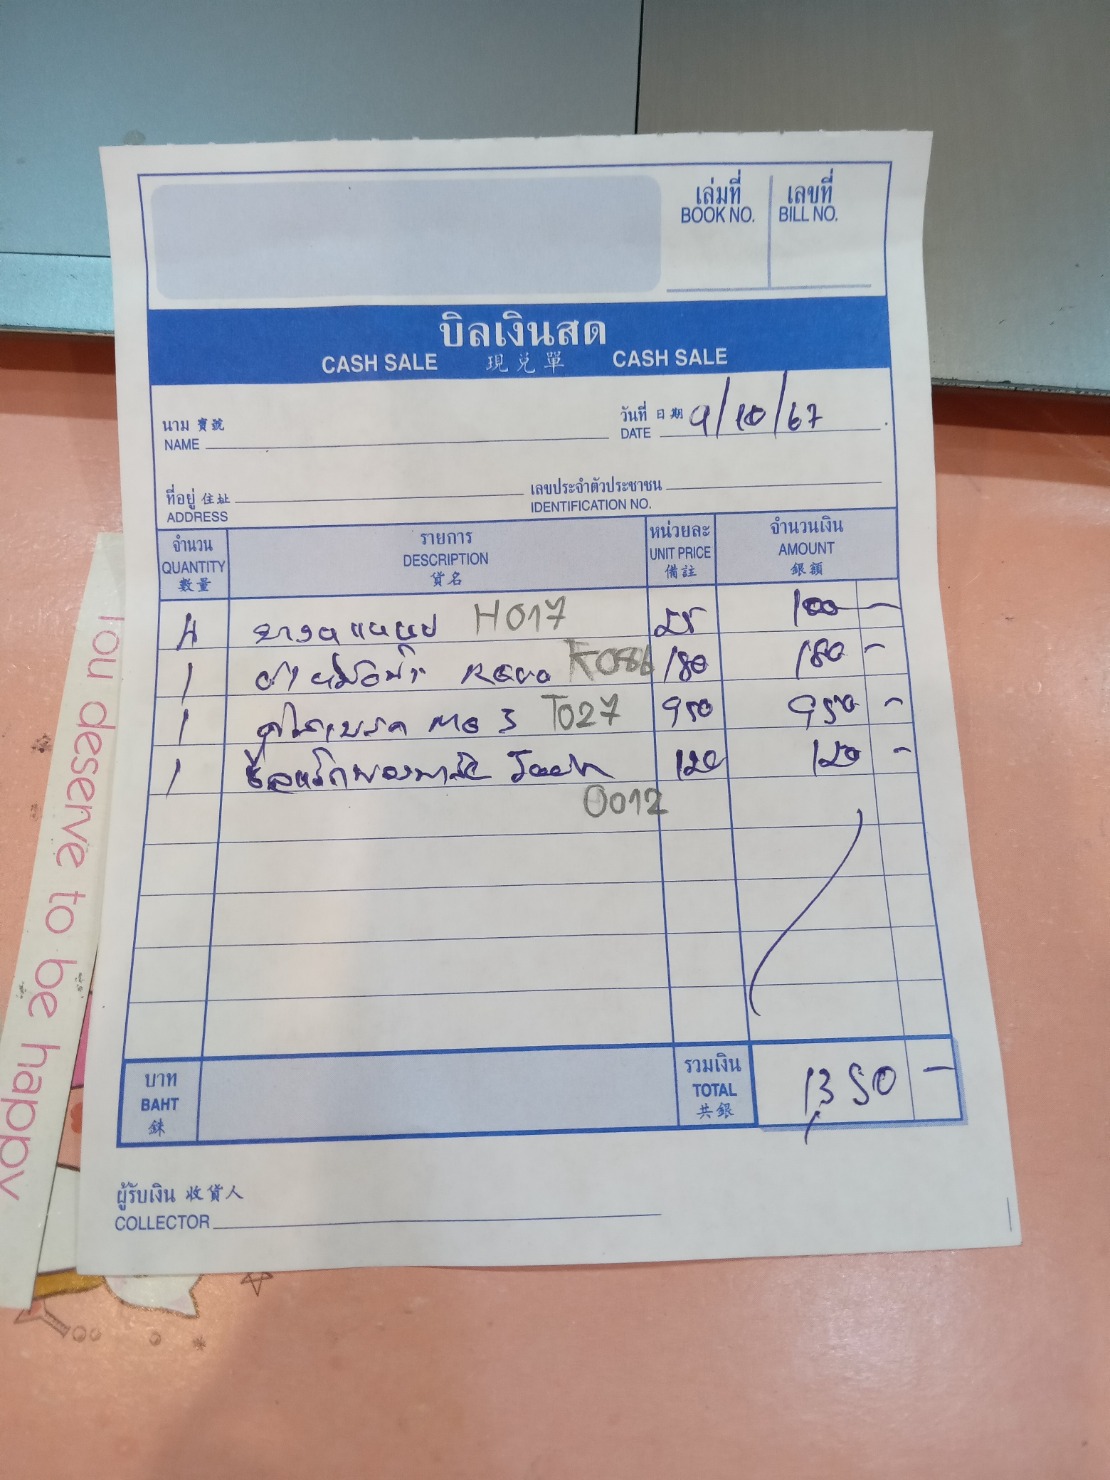 เล่มที่ เลขที่
BOOK NO. BILL NO.
บิลเงินสด
CASH SALE 現兑單 CASH SALE
นาม 寶號 วันที่ 日期 9/10/67
NAME DATE
ที่อยู่ 住址 เลขประจำตัวประชาชน
ADDRESS IDENTIFICATION NO.
จำนวน รายการ หน่วยละ จำนวนเงิน
QUANTITY DESCRIPTION UNIT PRICE AMOUNT
數量 貨名 備註 銀額
4 H017 25 100 -
1 Revo K086 180 180 -
1 T027 950 950 -
1 120 120 -
0012
บาท รวมเงิน
BAHT TOTAL 1,350 -
銖 共銀
ผู้รับเงิน 收貨人
COLLECTOR
You deserve to be happy